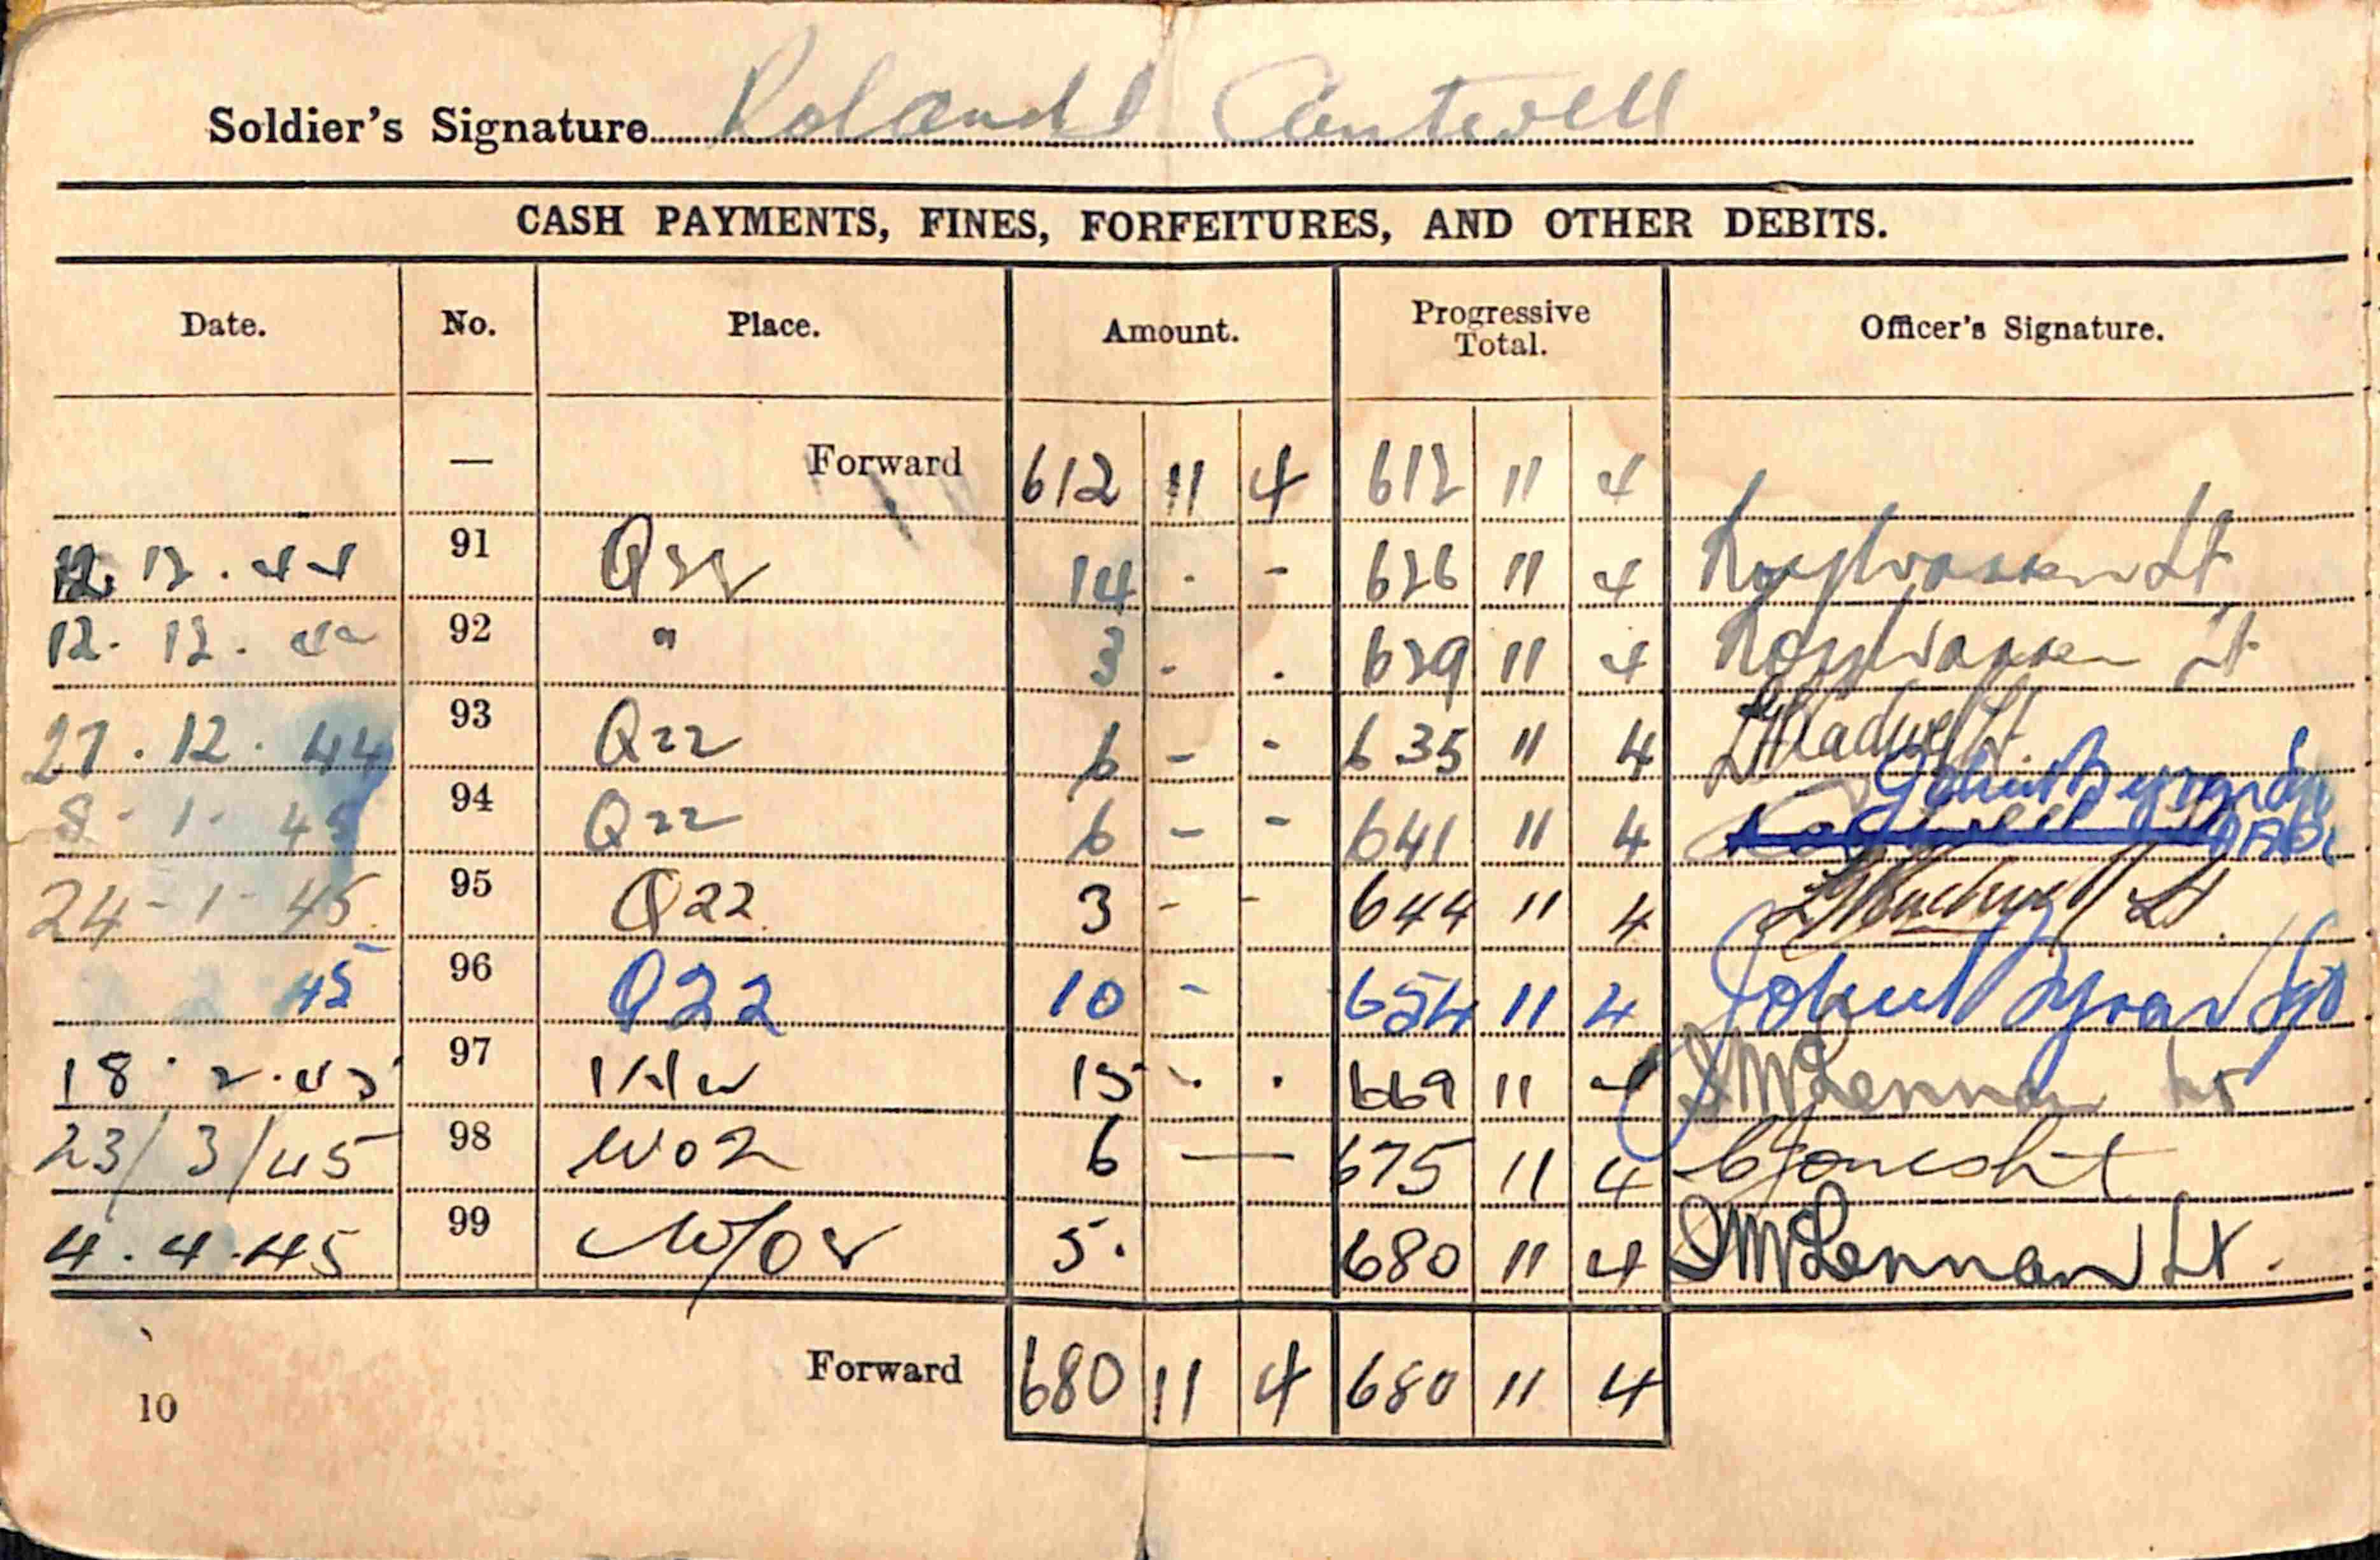 Soldier's Signature Roland Cantwell
CASH PAYMENTS, FINES, FORFEITURES, AND OTHER DEBITS.
Date. No. Place. Amount. Progressive Total. Officer's Signature.
— Forward 612 11 4 612 11 4
12. 12. 44 91 Q22 14 - - 626 11 4 Lt
12. 12. 44 92 " 3 - . 629 11 4 Lt
27. 12. 44 93 Q22 6 - - 635 11 4 Lt.
8 - 1 - 45 94 Q22 6 - - 641 11 4
24 - 1 - 45 95 Q22 3 - - 644 11 4 Lt.
45 96 Q22 10 - 654 11 4
18 . 2 . 45 97 15 . . 669 11 4 McLennan Lt
23/3/45 98 W02 6 — 675 11 4
4 . 4 . 45 99 W/02 5 . 680 11 4 McLennan Lt.
Forward 680 11 4 680 11 4
10